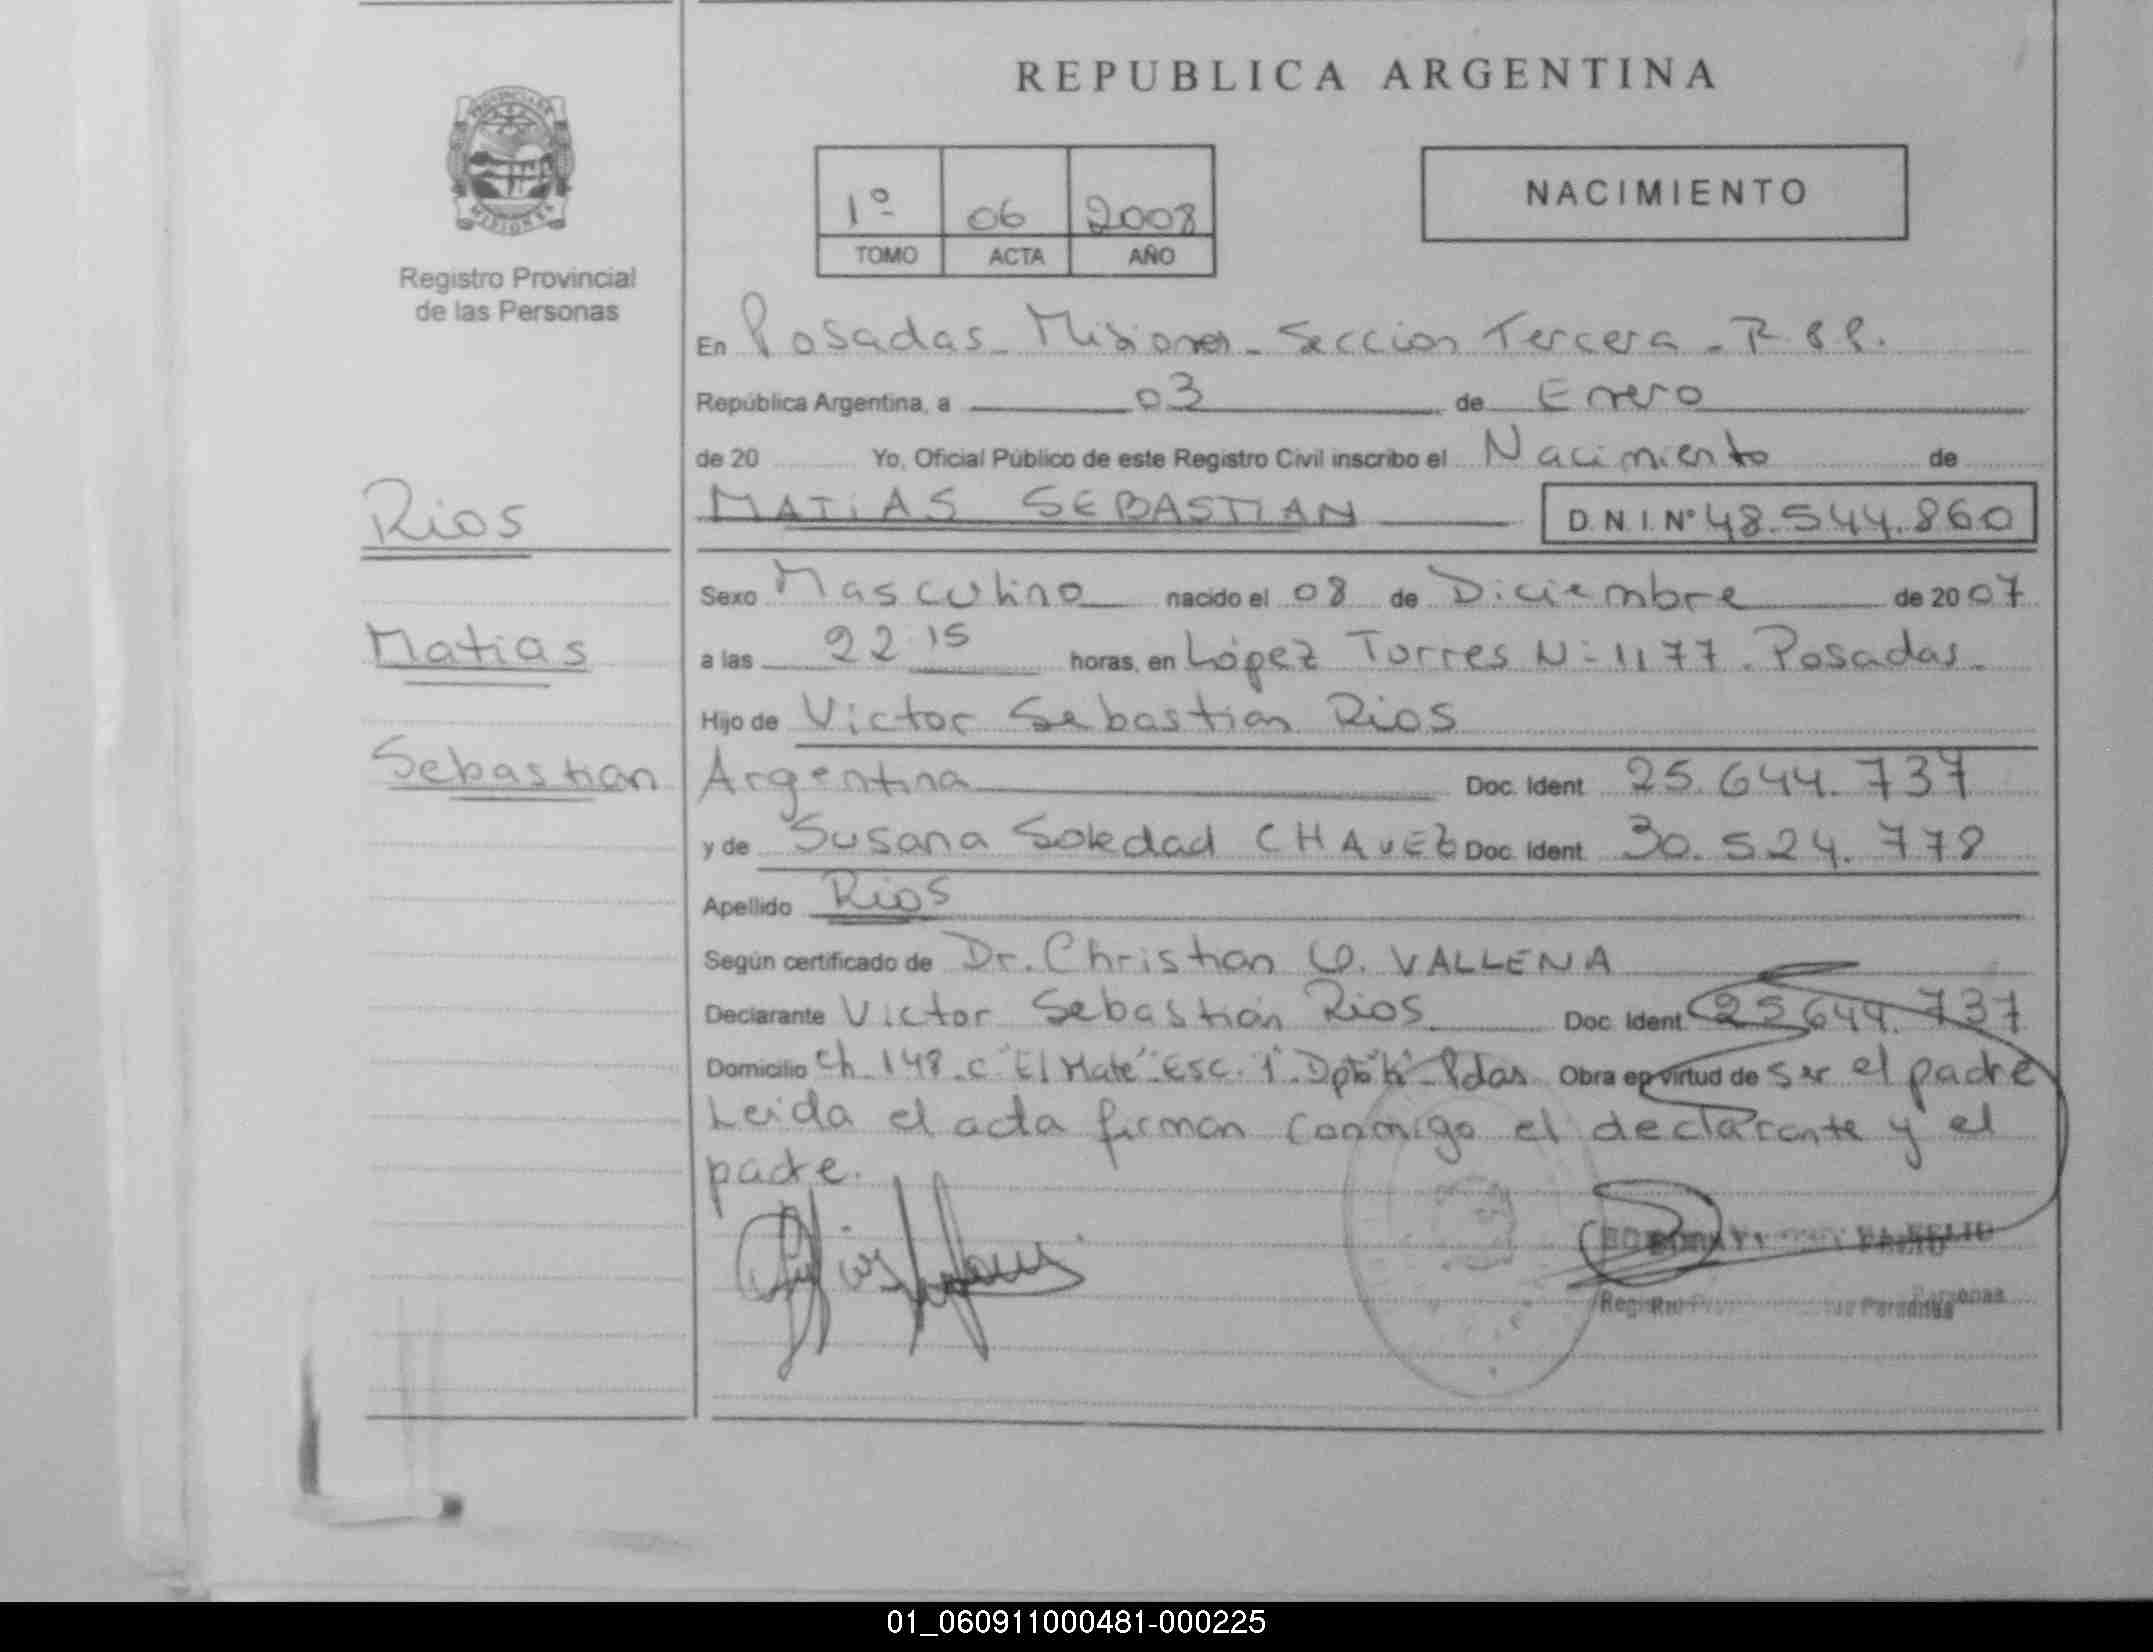 REPUBLICA ARGENTINA
PROVINCIA DE
MISIONES
Registro Provincial
de las Personas
1º 06 2008
TOMO ACTA AÑO
NACIMIENTO
En Posadas - Misiones - Seccion Tercera - R.P.P.
República Argentina, a 03 de Enero
de 20 Yo, Oficial Público de este Registro Civil inscribo el Nacimiento de
Rios
MATIAS SEBASTIAN D.N.I. Nº 48.544.860
Sexo Masculino nacido el 08 de Diciembre de 20 07
Matias
a las 22 15 horas, en López Torres Nº 1177. Posadas.
Hijo de Victor Sebastian Rios
Sebastian
Argentina Doc. Ident 25.644.737
y de Susana Soledad CHAVEZ Doc. Ident 30.524.778
Apellido Rios
Según certificado de Dr. Christian VALLENA
Declarante Victor Sebastián Rios Doc. Ident. 25644.737
Domicilio Ch. 148 - C "El Mate" - Esc. 1 - Dpto - Pdas Obra en virtud de ser el padre
Leida el acta firman conmigo el declarante y el
padre.
01_060911000481-000225